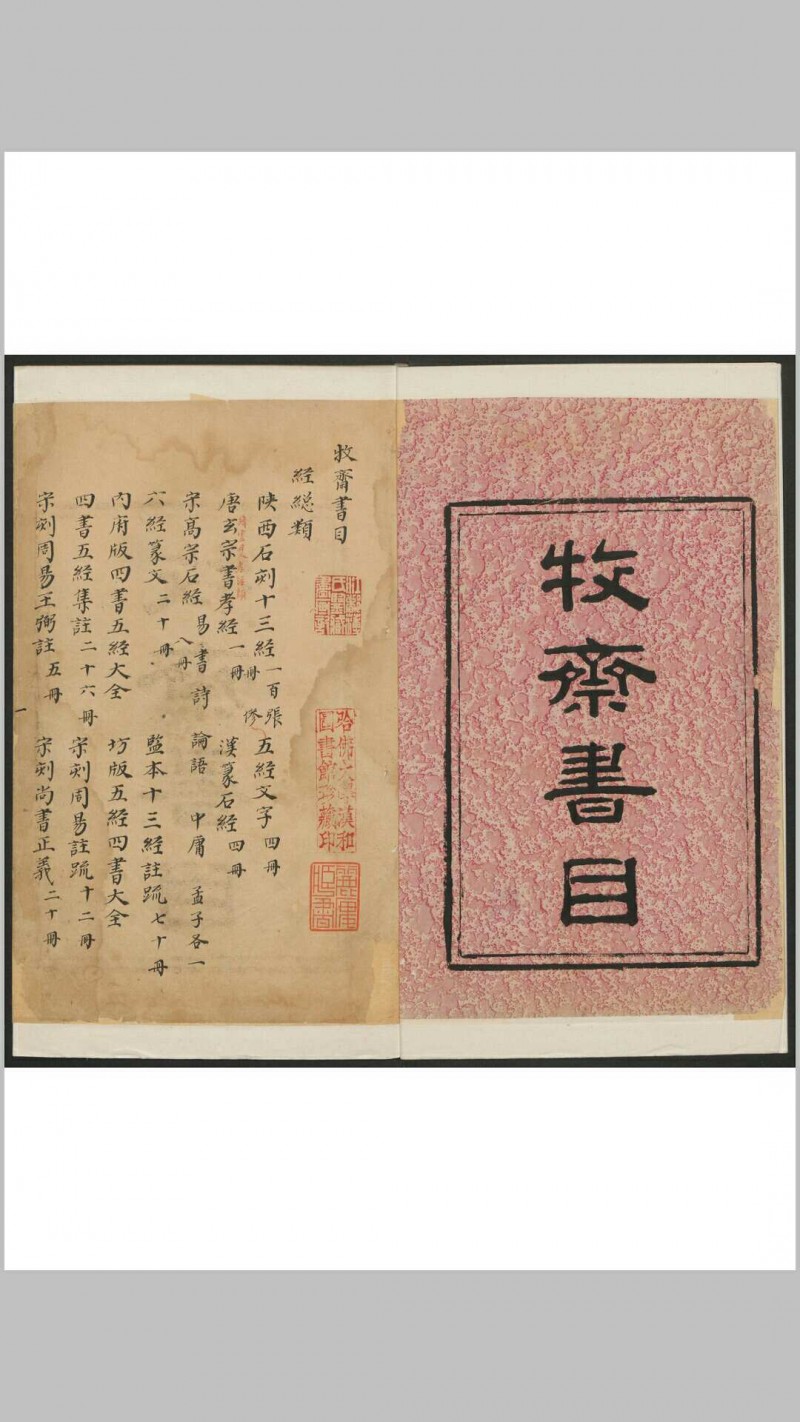 牧齋書目
牧齋書目
經總類
陝西石刻十三經一百張 五經文字四冊
唐玄宗書孝經一冊 漢篆石經四冊
宋高宗石經 易 書 詩 論語 中庸 孟子各一
八冊
六經篆文二十冊 監本十三經註疏七十冊
內府版四書五經大全 坊版五經四書大全
四書五經集註二十六冊 宋刻周易註疏十二冊
宋刻周易王弼註五冊 宋刻尚書正義二十冊
哈佛大學漢和
圖書館珍藏印